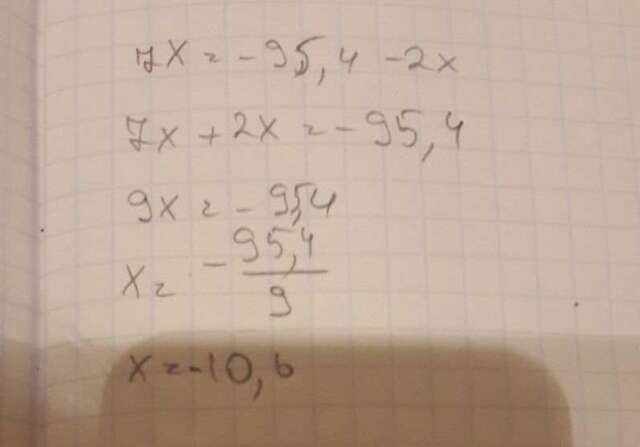 7x = -95,4 -2x
7x + 2x = -95,4
9x = -95,4
x = -95,4/9
x = -10,6